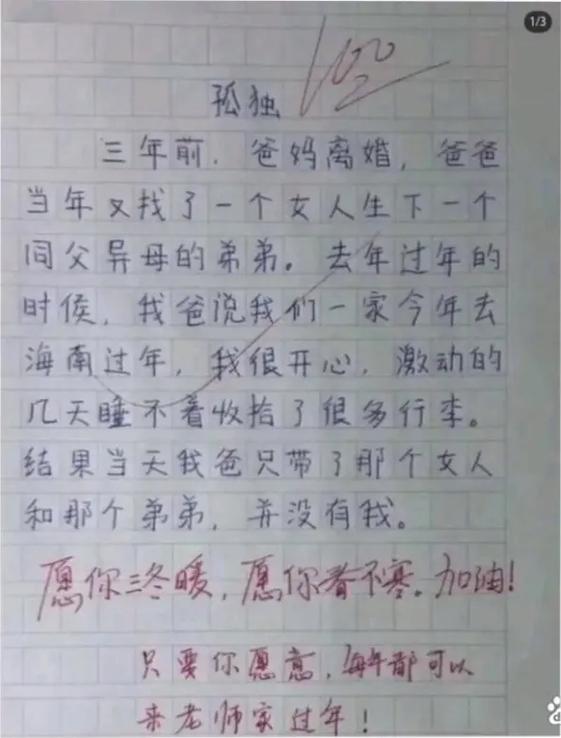 1/3
100
孤独
三年前.爸妈离婚,爸爸
当年又找了一个女人生下一个
同父异母的弟弟。去年过年的
时候,我爸说我们一家今年去
海南过年,我很开心,激动的
几天睡不着收拾了很多行李。
结果当天我爸只带了那个女人
和那个弟弟,并没有我。
愿你三冬暖,愿你春不寒。加油!
只要你愿意,每年都可以
来老师家过年!